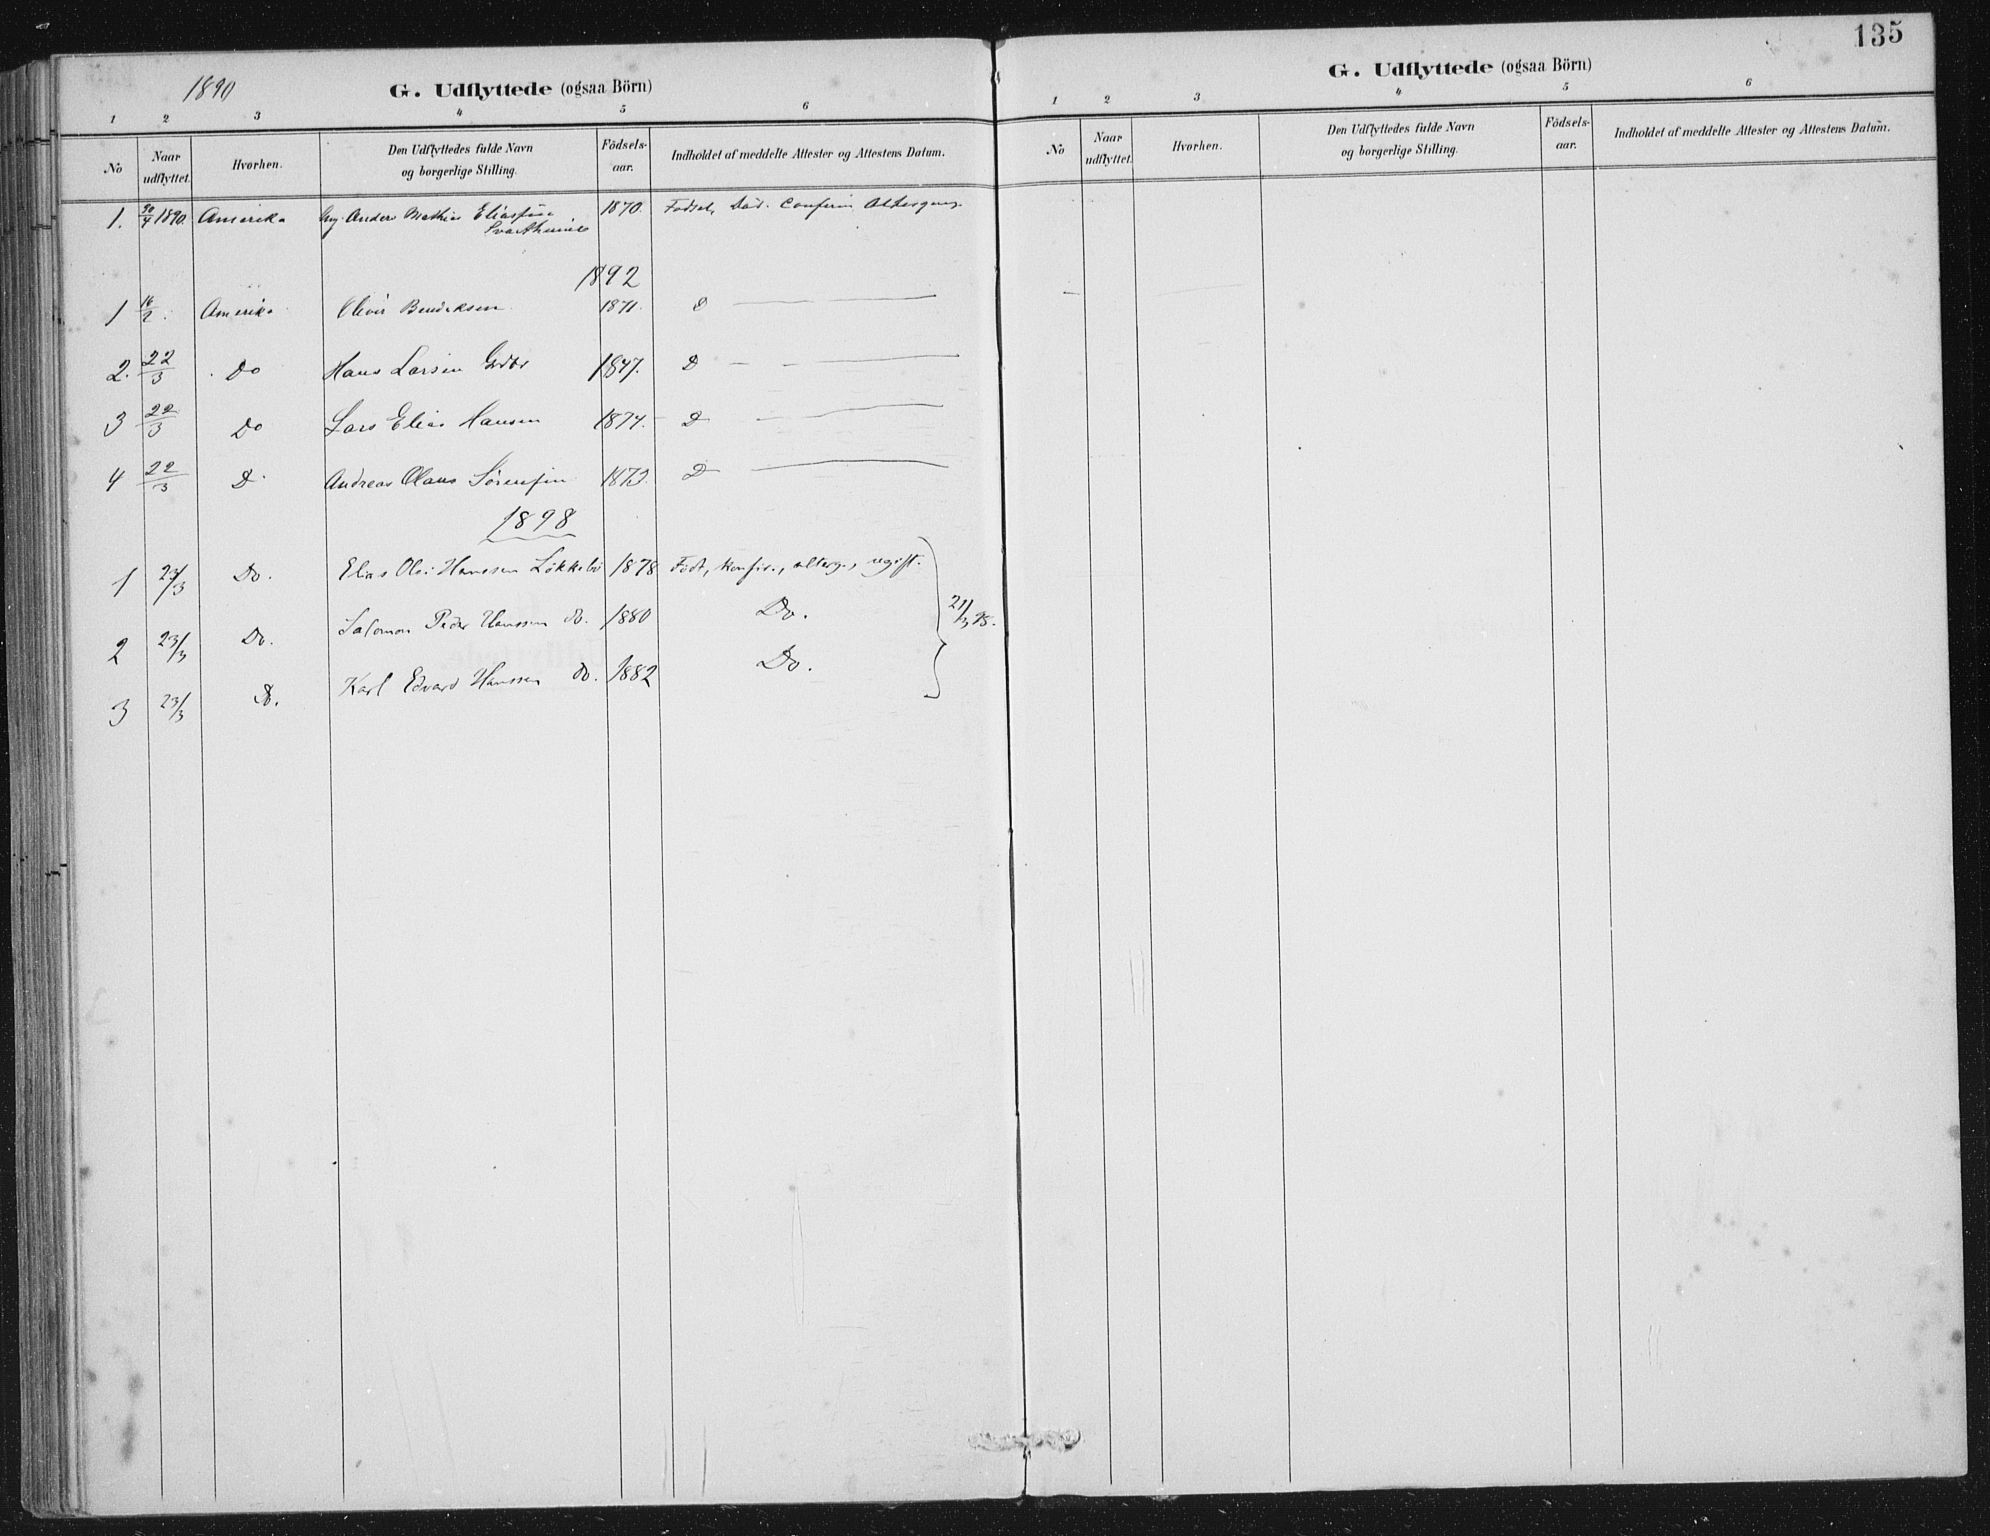 135
1890
G. Udflyttede (ogsaa Börn)
1 2 3 4 5 6
No
Naar udflyttet.
Hvorhen.
Den Udflyttedes fulde Navn
og borgerlige Stilling.
Födsels-
aar.
Indholdet af meddelte Attester og Attestens Datum.
1. 30/4 1890. Amerika Ung. Anders Mathias Eliassen 1870. Fødsel, Daab. Confirm
1892
1 16/2. Amerika Oliver Bendiksen 1871. D
2. 22/3 Do Hans Larsen 1847. D
3 22/3 Do Lars Elias Hansen 1874. D
4 22/3 D. Andreas Olaus Sørensen 1873. D
1898
1 23/3 Do. Elias Olai Hanssen Løkkebø 1878 Født, konfir., alterg., ugift.
2 23/3 Do. Salomon Peder Hanssen do. 1880 Do.
21/3 98.
3 23/3 Do. Karl Edvard Hanssen do. 1882 Do.
G. Udflyttede (ogsaa Börn)
1 2 3 4 5 6
No
Naar
udflyttet.
Hvorhen.
Den Udflyttedes fulde Navn
og borgerlige Stilling.
Födsels-
aar.
Indholdet af meddelte Attester og Attestens Datum.